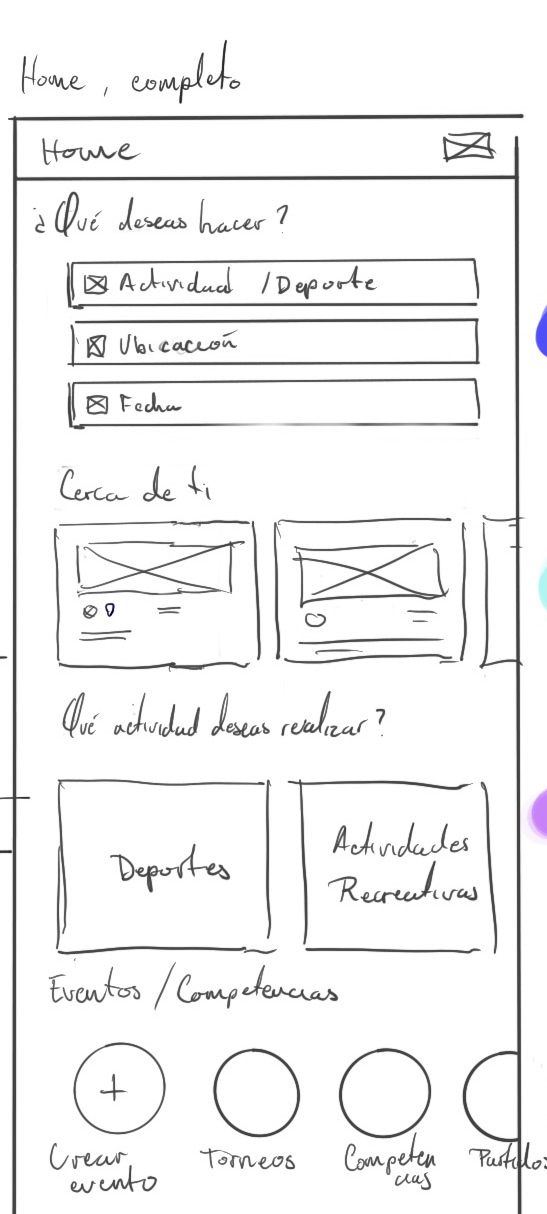 Home, completo
Home
¿Qué deseas hacer?
Actividad /Deporte
Ubicación
Fecha
Cerca de ti
Qué actividad deseas realizar?
Deportes
Actividades
Recreativas
Eventos/Competencias
+
Crear
evento
Torneos
Competen
cias
Partidos